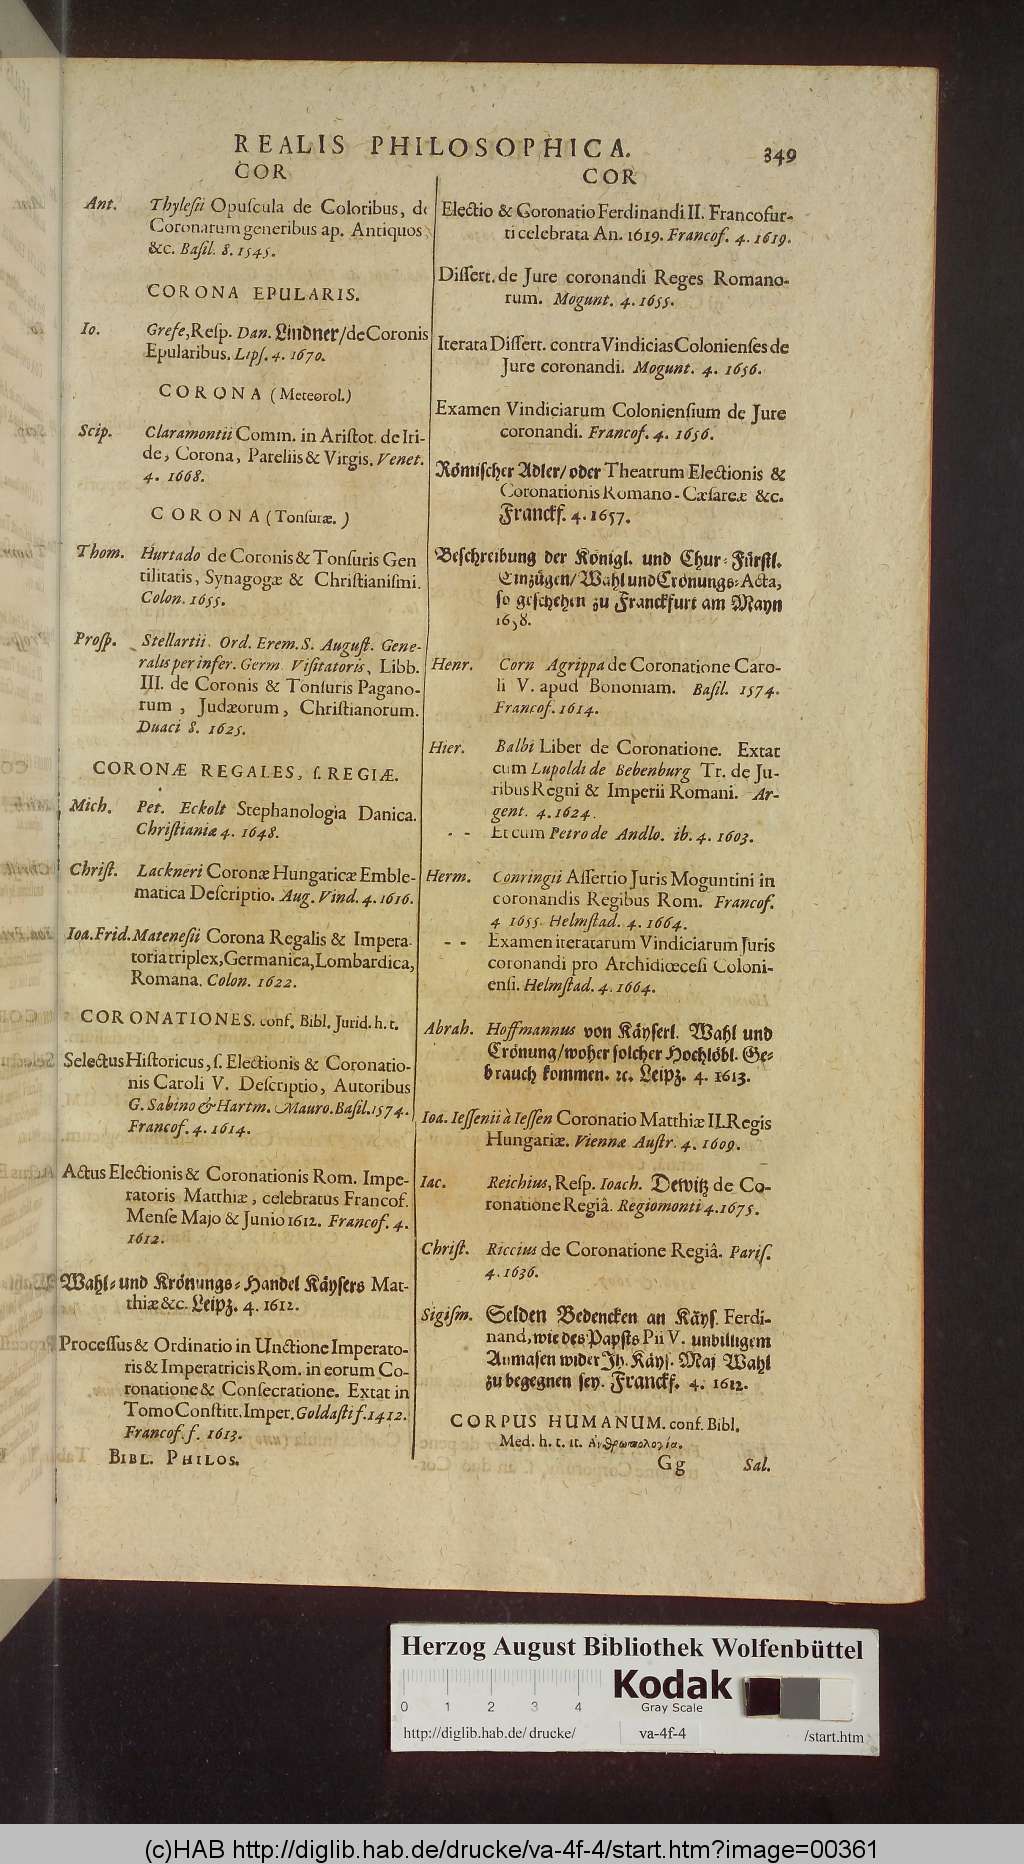 REALIS PHILOSOPHICA. 349
COR
Ant. Thylesii Opuscula de Coloribus, de
Coronarum generibus ap. Antiquos
&c. Basil. 8. 1545.
CORONA EPULARIS.
Io. Grefe, Resp. Dan. Lindner/ de Coronis
Epularibus. Lips. 4. 1670.
CORONA (Meteorol.)
Scip. Claramontii Comm. in Aristot. de Iri-
de, Corona, Pareliis & Virgis. Venet.
4. 1668.
CORONA (Tonsuræ.)
Thom. Hurtado de Coronis & Tonsuris Gen
tilitatis, Synagogæ & Christianismi.
Colon. 1655.
Prosp. Stellartii Ord. Erem. S. August. Gene-
ralis per infer. Germ. Visitatoris, Libb.
III. de Coronis & Tonsuris Pagano-
rum, Judæorum, Christianorum.
Duaci 8. 1625.
CORONÆ REGALES, s. REGIÆ.
Mich. Pet. Eckolt Stephanologia Danica.
Christianiæ 4. 1648.
Christ. Lackneri Coronæ Hungaricæ Emble-
matica Descriptio. Aug. Vind. 4. 1616.
Ioa. Frid. Matenesii Corona Regalis & Impera-
toria triplex, Germanica, Lombardica,
Romana. Colon. 1622.
CORONATIONES. conf. Bibl. Jurid. h. t.
Selectus Historicus, s. Electionis & Coronatio-
nis Caroli V. Descriptio, Autoribus
G. Sabino & Hartm. Mauro. Basil. 1574.
Francof. 4. 1614.
Actus Electionis & Coronationis Rom. Impe-
ratoris Matthiæ, celebratus Francof.
Mense Majo & Junio 1612. Francof. 4.
1612.
Wahl- und Krönungs-Handel Käysers Mat-
thiæ &c. Leipz. 4. 1612.
Processus & Ordinatio in Unctione Imperato-
ris & Imperatricis Rom. in eorum Co-
ronatione & Consecratione. Extat in
Tomo Constitt. Imper. Goldasti f. 1412.
Francof. f. 1613.
BIBL. PHILOS.
COR
Electio & Coronatio Ferdinandi II. Francofur-
ti celebrata An. 1619. Francof. 4. 1619.
Dissert. de Jure coronandi Reges Romano-
rum. Mogunt. 4. 1655.
Iterata Dissert. contra Vindicias Colonienses de
Jure coronandi. Mogunt. 4. 1656.
Examen Vindiciarum Coloniensium de Jure
coronandi. Francof. 4. 1656.
Römischer Adler/ oder Theatrum Electionis &
Coronationis Romano-Cæsareæ &c.
Franckf. 4. 1657.
Beschreibung der Königl. und Chur-Fürstl.
Einzügen/ Wahl und Crönungs-Acta,
so geschehen zu Franckfurt am Mayn
1658.
Henr. Corn Agrippa de Coronatione Caro-
li V. apud Bononiam. Basil. 1574.
Francof. 1614.
Hier. Balbi Liber de Coronatione. Extat
cum Lupoldi de Bebenburg Tr. de Ju-
ribus Regni & Imperii Romani. Ar-
gent. 4. 1624.
- - Et cum Petro de Andlo. ib. 4. 1603.
Herm. Conringii Assertio Juris Moguntini in
coronandis Regibus Rom. Francof.
4 1655. Helmstad. 4. 1664.
- - Examen iteratarum Vindiciarum Juris
coronandi pro Archidiœcesi Coloni-
ensi. Helmstad. 4. 1664.
Abrah. Hoffmannus von Käyserl. Wahl und
Crönung/ woher solcher Hochlöbl. Ge-
brauch kommen. ꝛc. Leipz. 4. 1613.
Ioa. Iessenii à Iessen Coronatio Matthiæ II. Regis
Hungariæ. Viennæ Austr. 4. 1609.
Iac. Reichius, Resp. Ioach. Dewitz de Co-
ronatione Regiâ. Regiomonti 4. 1675.
Christ. Riccius de Coronatione Regiâ. Paris.
4. 1636.
Sigism. Selden Bedencken an Käys. Ferdi-
nand, wie des Papsts Pii V. unbilligem
Anmasen wider Jh. Käys. Maj Wahl
zu begegnen sey. Franckf. 4. 1612.
CORPUS HUMANUM. conf. Bibl.
Med. h. t. it. Ἀνθρωπολογία.
Gg Sal.
Herzog August Bibliothek Wolfenbüttel
0 1 2 3 4
Kodak
Gray Scale
http://diglib.hab.de/drucke/ va-4f-4 /start.htm
(c)HAB http://diglib.hab.de/drucke/va-4f-4/start.htm?image=00361